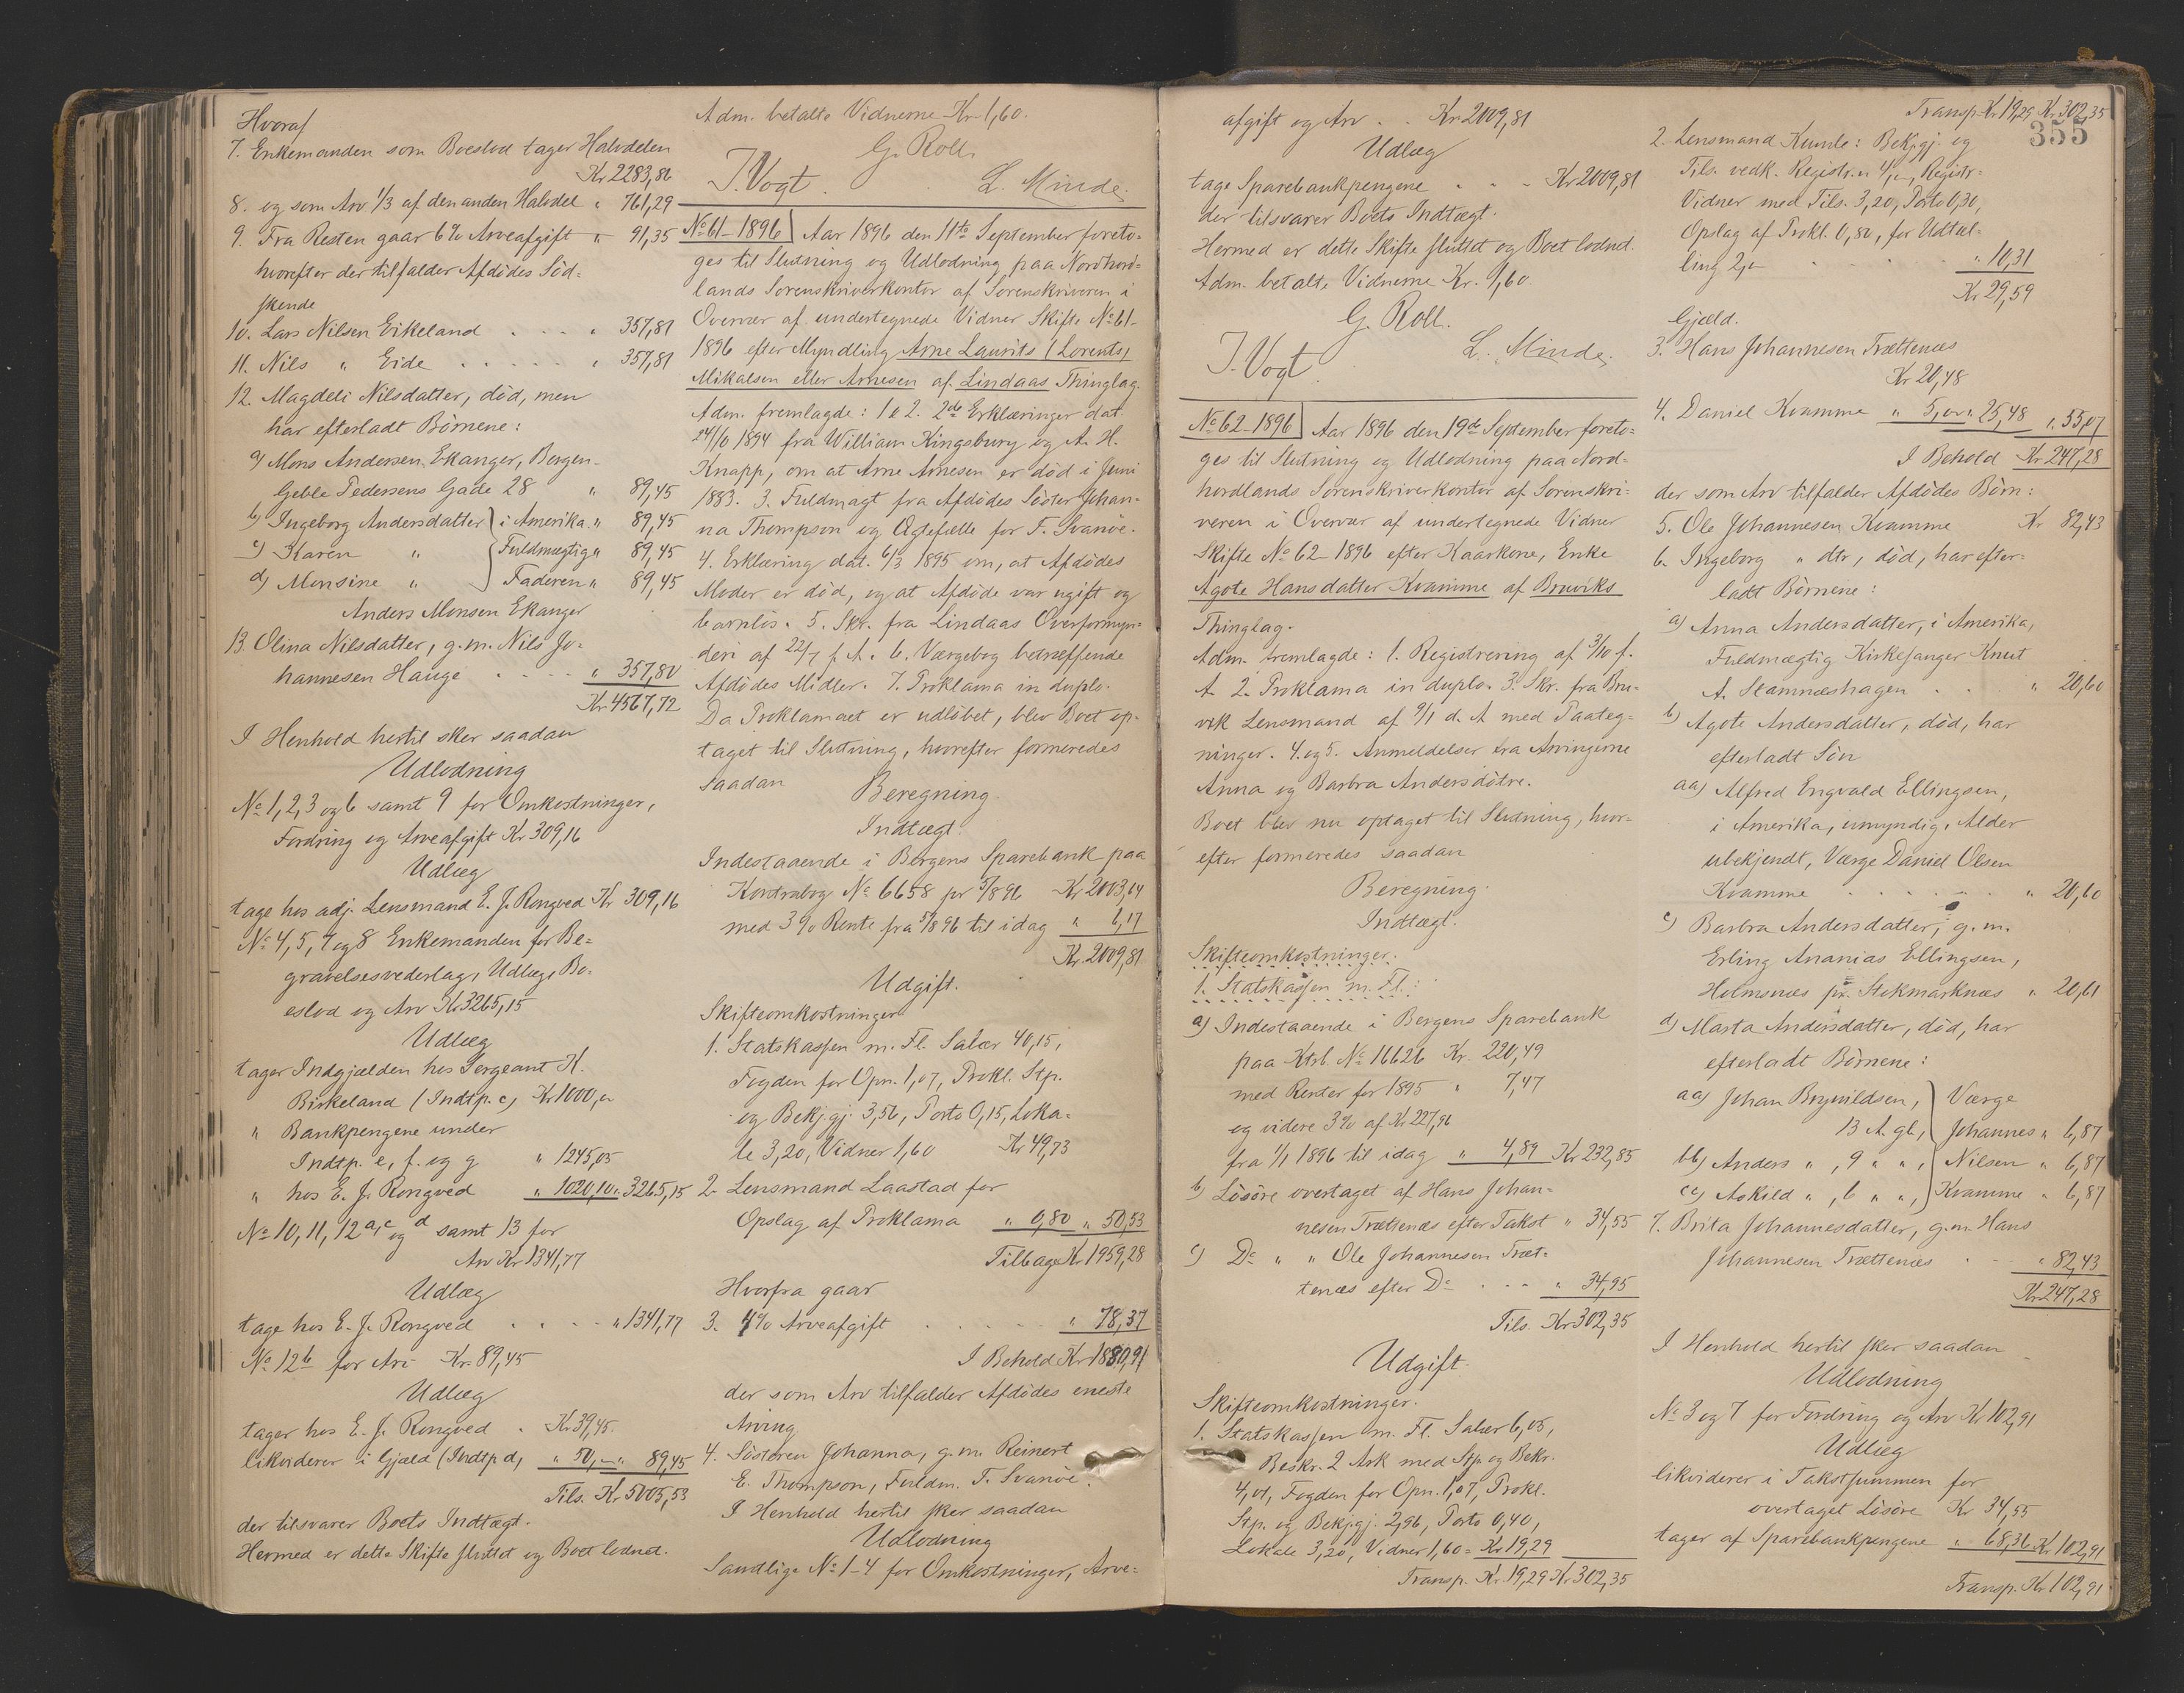 Hvoraf
7. Enkemanden som Boeslod tager Halvdelen
Kr 2283,86
8. og som Arv 1/3 af den anden Halvdel " 761,29
9. Fra Resten gaar 6% Arveafgift " 91,35
hvorefter der tilfalder Afdødes Söd-
skende
10. Lars Nilsen Eikeland . . . " 357,81
11. Nils " Eide . . . . . " 357,81
12. Magdeli Nilsdatter, död, men
har efterladt Börnene:
a) Mons Andersen Ekanger, Bergen -
Geble Pedersens Gade 28 " 89,45
b) Ingeborg Andersdatter } i Amerika. " 89,45
c) Karen " } Fuldmægtig " 89,45
d) Monsine " } Faderen " 89,45
Anders Monsen Ekanger
13. Olina Nilsdatter, g. m. Nils Jo-
hannesen Hauge . . . . " 357,80
Kr 4567,72
I Henhold hertil sker saadan
Udlodning
No 1, 2, 3 og 6 samt 9 for Omkostninger,
Fordring og Arveafgift Kr 309,16
Udlæg
tage hos adj. Lensmand E. J. Rongved Kr 309,16
No 4, 5, 7 og 8 Enkemanden for Be-
gravelsesvederlag, Udlæg, Bo-
eslod og Arv Kr 3265,15
Udlæg
tager Indgjælden hos Sergeant K.
Birkeland (Indtp. c) Kr 1000,"
" Bankpengene under
Indtp. e, f. og g " 1245,05
" hos E. J. Rongved " 1020,10 " 3265,15
No 10, 11, 12 a, c og d samt 13 for
Arv Kr 1341,77
Udlæg
tage hos E. J. Rongved . . . . " 1341,77
No 12 b for Arv Kr 89,45
Udlæg
tager hos E. J. Rongved . Kr 39,45.
likviderer i Gjæld (Indtp d, " 50,- " 89,45
Tils. Kr 5005,53
der tilsvarer Boets Indtægt.
Hermed er dette Skifte sluttet og Boet lodnet.
Adm. betalte Vidnerne Kr 1,60.
G. Roll.
J. Vogt. L. Minde.
No 61-1896 Aar 1896 den 11te September foreto-
ges til Slutning og Udlodning paa Nordhord-
lands Sorenskriverkontor af Sorenskriveren i
Overvær af undertegnede Vidner Skifte No 61-
1896 efter Myndling Arne Laurits (Lorents)
Mikalsen eller Arnesen af Lindaas Thinglag.
Adm. fremlagde: 1 & 2. 2de Erklæringer dat.
24/6 1894 fra William Kingsbury og A. H.
Knapp, om at Arne Arnesen er död i Juni
1883. 3. Fuldmagt fra Afdödes Söster Johan-
na Thompson og Ægtefælle for T. Svanöe.
4. Erklæring dat. 6/3 1895 om, at Afdödes
Moder er död, og at Afdöde var ugift og
barnlös. 5. Skr. fra Lindaas Overformyn-
deri af 22/7 f. A. 6. Værgebog betræffende
Afdödes Midler. 7. Proklama in duplo.
Da Proklamaet er udlöbet, blev Boet op-
taget til Slutning, hvorefter formeredes
saadan Beregning.
Indtægt.
Indestaaende i Bergens Sparebank paa
Kontrabog No 6658 pr 5/8 96 Kr 2003,64
med 3% Rente fra 5/8 96 til idag " 6,17
Kr. 2009,81
Udgift.
Skifteomkostninger
1. Statskassen m. Fl. Salær 40,15,
Fogden for Opn. 1,07, Prokl. Stp.
og Bekj.gj. 3,56, Porto 0,15, Loka-
le 3,20, Vidner 1,60 Kr 49,73
2. Lensmand Laastad for
Opslag af Proklama " 0,80 " 50,53
Tilbage Kr 1959,28
Hvorfra gaar
3. 4% Arveafgift . . . . . " 78,37
I Behold Kr 1880,91
der som Arv tilfalder Afdödes eneste
Arving
4. Sösteren Johanna, g. m. Reinert
E. Thompson, Fuldm. T. Svanöe.
I Henhold hertil sker saadan
Udlodning
Samtlige No 1-4 for Omkostninger, Arve-
afgift og Arv . . Kr 2009,81
Udlæg
tage Sparebankpengene . . . Kr 2009,81
der tilsvarer Boets Indtægt.
Hermed er dette Skifte sluttet og Boet lodnet.
Adm. betalte Vidnerne Kr. 1,60.
G. Roll.
J. Vogt. L. Minde.
No 62-1896 Aar 1896 den 19de September foreto-
ges til Slutning og Udlodning paa Nord-
hordlands Sorenskriverkontor af Sorenskri-
veren i Overvær af undertegnede Vidner
Skifte No 62-1896 efter Kaarkone, Enke
Agote Hansdatter Kvamme af Bruviks
Thinglag.
Adm. fremlagde: 1. Registrering af 3/10 f.
A. 2. Proklama in duplo. 3. Skr. fra Bru-
vik Lensmand af 9/1 d. A med Paateg-
ninger. 4. og 5. Anmeldelser fra Arvingerne
Anna og Barbra Andersdötre.
Boet blev nu optaget til Slutning, hvor-
efter formeredes saadan
Beregning.
Indtægt.
Skifteomkostninger.
1. Statskassen m. Fl.:
a) Indestaaende i Bergens Sparebank
paa Ktrb. No 16626 Kr. 220,49
med Renter for 1895 " 7,47
og videre 3% af Kr 227,96
fra 1/1 1896 til idag " 4,89 Kr 232,85
b) Lösöre overtaget af Hans Johan-
nesen Trættenæs efter Takst " 34,55
c) Do " " Ole Johannesen Træt-
tenæs efter Do . . . " 34,95
Tils. Kr 302,35
Udgift.
Skifteomkostninger.
1. Statskassen m. Fl. Salær 6,05,
Beskr. 2 Ark med Stp. og Bekr.
4,01, Fogden for Opn. 1,07, Prokl.
Stp. og Bekj.gj. 2,96, Porto 0,40,
Lokale 3,20, Vidner 1,60 = Kr 19,29
Transp. Kr. 19,29 Kr 302,35
Transp. Kr 19,29 Kr 302,35
355
2. Lensmand Kumle: Bekj.gj. og
Tils. vedk. Registr.n 4,", Registr-
Vidner med Tils. 3,20, Porto 0,30,
Opslag af Prokl. 0,80, for Udtæl-
ling 2," . . . . . " 10,31
Kr 29,59
Gjæld.
3. Hans Johannesen Trættenæs
Kr 20,48
4. Daniel Kvamme " 5,00 " 25,48 " 55,07
I Behold Kr 247,28
der som Arv tilfalder Afdödes Börn:
5. Ole Johannesen Kvamme Kr 82,43
6. Ingeborg " dtr, död, har efter-
ladt Börnene:
a) Anna Andersdatter, i Amerika,
Fuldmægtig Kirkesanger Knut
A. Stamnæshagen . . " 20,60
b) Agote Andersdatter, död, har
efterladt Sön
aa) Alfred Engvald Ellingsen,
i Amerika, umyndig, Alder
ubekjendt, Værge Daniel Olsen
Kvamme . . . . . " 20,60
c) Barbra Andersdatter, g. m.
Erling Ananias Ellingsen,
Holmsnæs pr. Stokmarknæs " 20,61
d) Marta Andersdatter, död, har
efterladt Börnene:
aa) Johan Brynildsen, } Værge
13 A. gl., } Johannes " 6,87
bb) Anders " , 9 " " , } Nilsen " 6,87
cc) Askild " , 6 " " , } Kvamme " 6,87
7. Brita Johannesdatter, g. m. Hans
Johannesen Trættenæs . . " 82,43
Kr 247,28
I Henhold hertil sker saadan
Udlodning
No 3 og 7 for Fordring og Arv Kr 102,91
Udlæg
likviderer i Takstsummen for
overtaget Lösöre Kr 34,55
tager af Sparebankpengene " 68,36 Kr 102,91
Transp. Kr 102,91